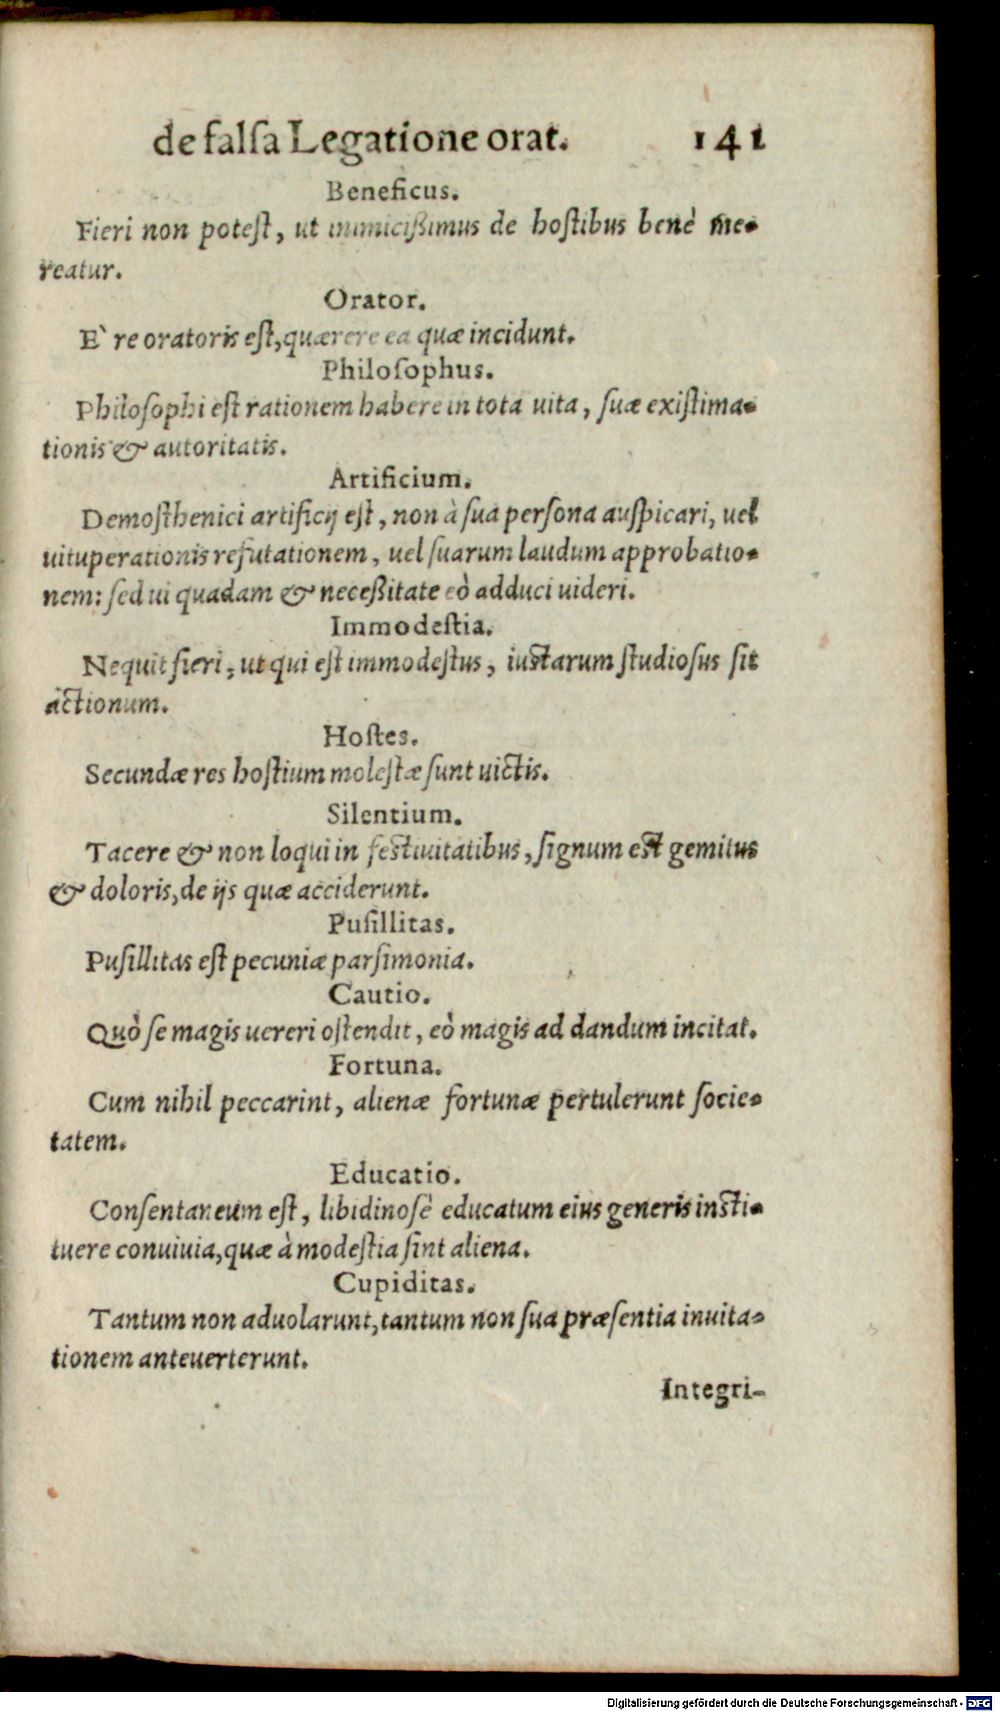 de falsa Legatione orat. 141
Beneficus.
Fieri non potest, ut inimicißimus de hostibus benè me-
reatur.
Orator.
E` re oratoris est, quærere ea quæ incidunt.
Philosophus.
Philosophi est rationem habere in tota uita, suæ existima-
tionis & autoritatis.
Artificium.
Demosthenici artificij est, non à sua persona auspicari, uel
uituperationis refutationem, uel suarum laudum approbatio-
nem: sed ui quadam & neceßitate eò adduci uideri.
Immodestia.
Nequit fieri, ut qui est immodestus, iustarum studiosus sit
actionum.
Hostes.
Secundæ res hostium molestæ sunt uictis.
Silentium.
Tacere & non loqui in festiuitatibus, signum est gemitus
& doloris, de ijs quæ acciderunt.
Pusillitas.
Pusillitas est pecuniæ parsimonia.
Cautio.
Quò se magis uereri ostendit, eò magis ad dandum incitat.
Fortuna.
Cum nihil peccarint, alienæ fortunæ pertulerunt socie-
tatem.
Educatio.
Consentaneum est, libidinosè educatum eius generis insti-
tuere conuiuia, quæ à modestia sint aliena.
Cupiditas.
Tantum non aduolarunt, tantum non sua præsentia inuita-
tionem anteuerterunt.
Integri-
Digitalisierung gefördert durch die Deutsche Forschungsgemeinschaft - DFG